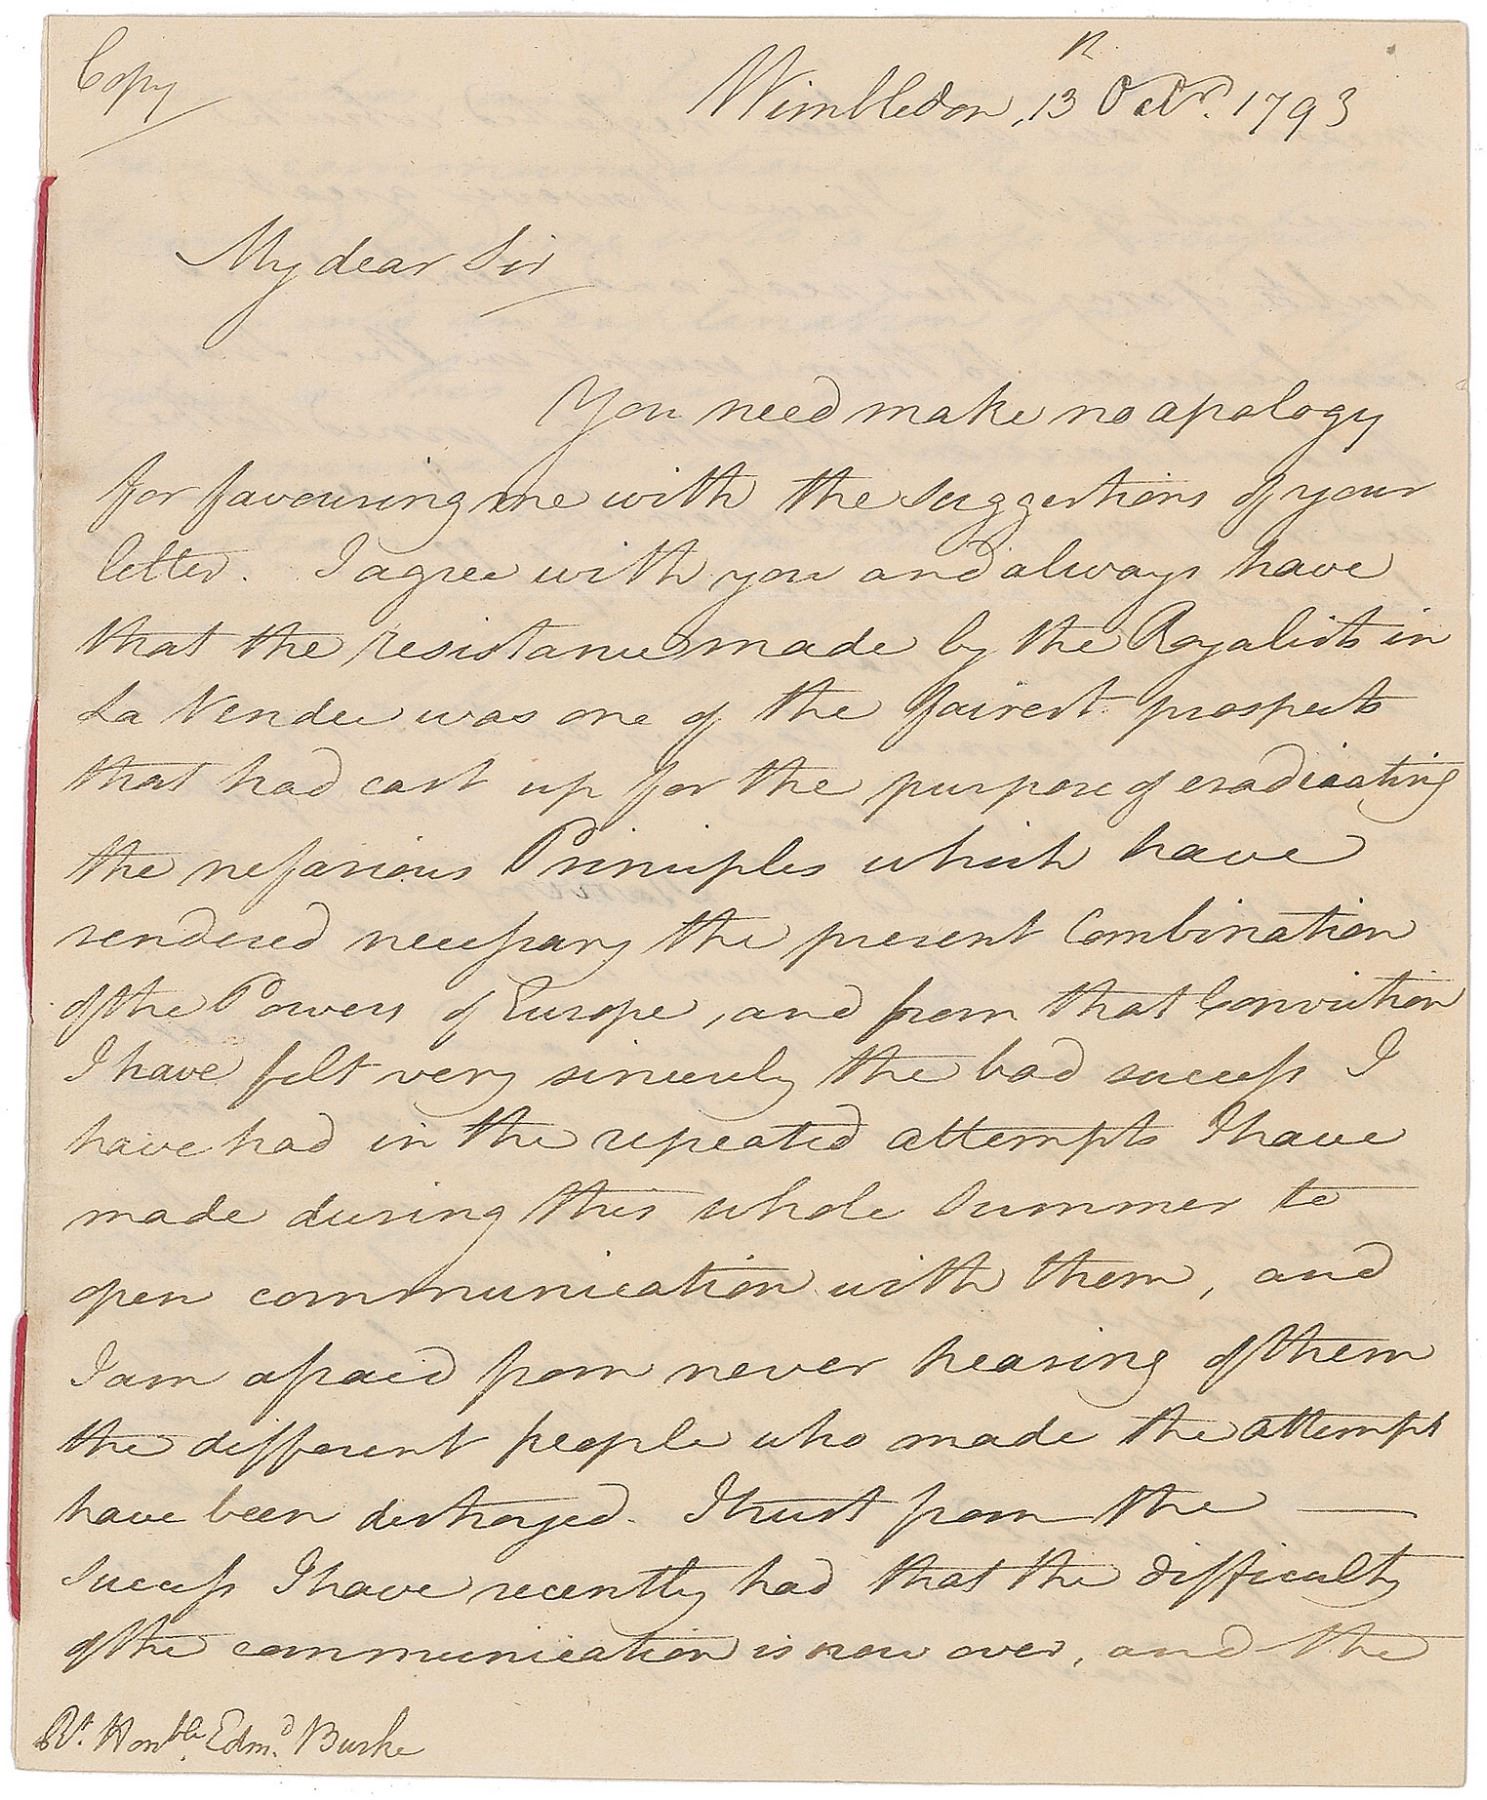 Copy
Wimbledon, 13th Octr. 1793
My dear Sir
You need make no apology
for favouring me with the suggestions of your
letter. I agree with you and always have
that the resistance made by the Royalists in
La Vendee was one of the fairest prospects
that had cast up for the purpose of eradicating
the nefarious Principles which have
rendered necessary the present Combination
of the Powers of Europe, and from that Conviction
I have felt very sincerely the bad success I
have had in the repeated attempts I have
made during this whole Summer to
open communication with them, and
I am afraid from never hearing of them
the different people who made the attempt
have been destroyed. I trust from the —
success I have recently had that the difficulty
of the communication is now over, and the
Rt. Honble. Edmd. Burke